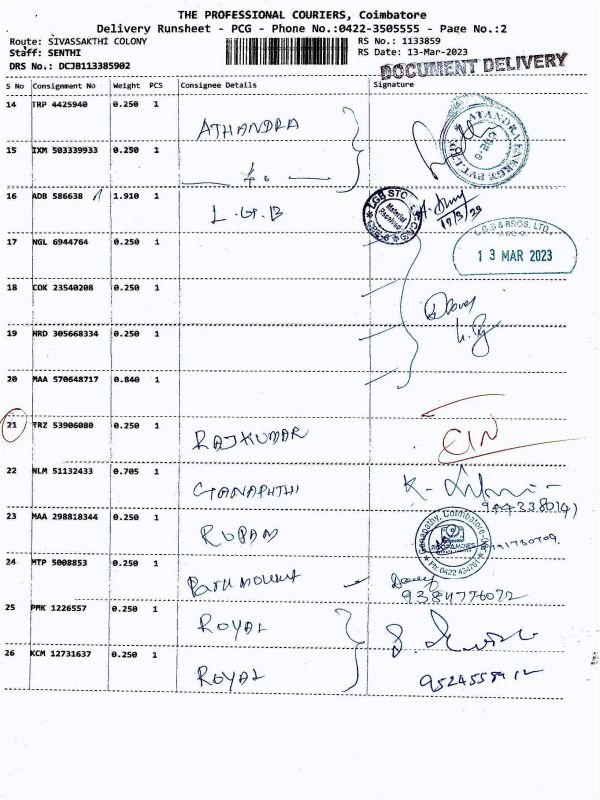 THE PROFESSIONAL COURIERS, Coimbatore
Delivery Runsheet - PCG - Phone No.:0422-3505555 - Page No.:2
Route: SIVASSAKTHI COLONY RS No.: 1133859
Staff: SENTHI RS Date: 13-Mar-2023
DRS No.: DCJB113385902 DOCUMENT DELIVERY
S No Consignment No Weight PCS Consignee Details Signature
14 TRP 4425940 0.250 1 ATHANDRA
15 IXM 503339933 0.250 1
16 ADB 586638 1.910 1 L.G.B
L.G.B & BROS. LTD.
13 MAR 2023
17 NGL 6944764 0.250 1
18 COK 23540208 0.250 1
19 HRD 305668334 0.250 1
20 MAA 570648717 0.840 1
21 TRZ 53906080 0.250 1 RAJKUMAR
22 NLM 51132433 0.705 1 GANAPHTHI
23 MAA 298818344 0.250 1 RUPAM
24 MTP 5008853 0.250 1 Paramount
9384776072
25 PMK 1226557 0.250 1 ROYAL
26 KCM 12731637 0.250 1 ROYAL